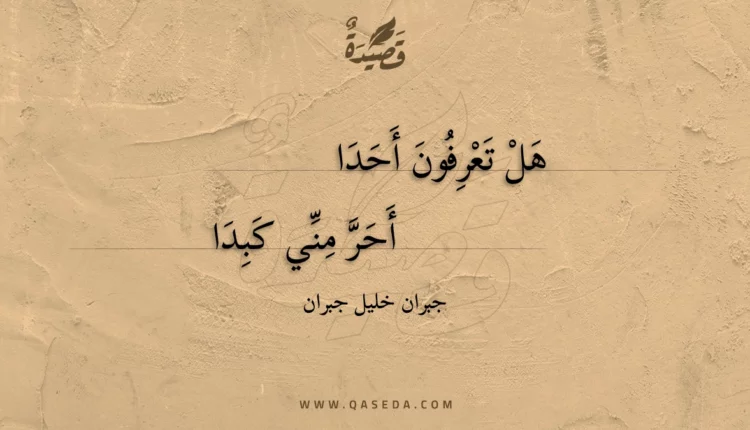 قَصِيدَةٌ
هَلْ تَعْرِفُونَ أَحَدَا
أَحَرَّ مِنِّي كَبِدَا
جبران خليل جبران
WWW.QASEDA.COM